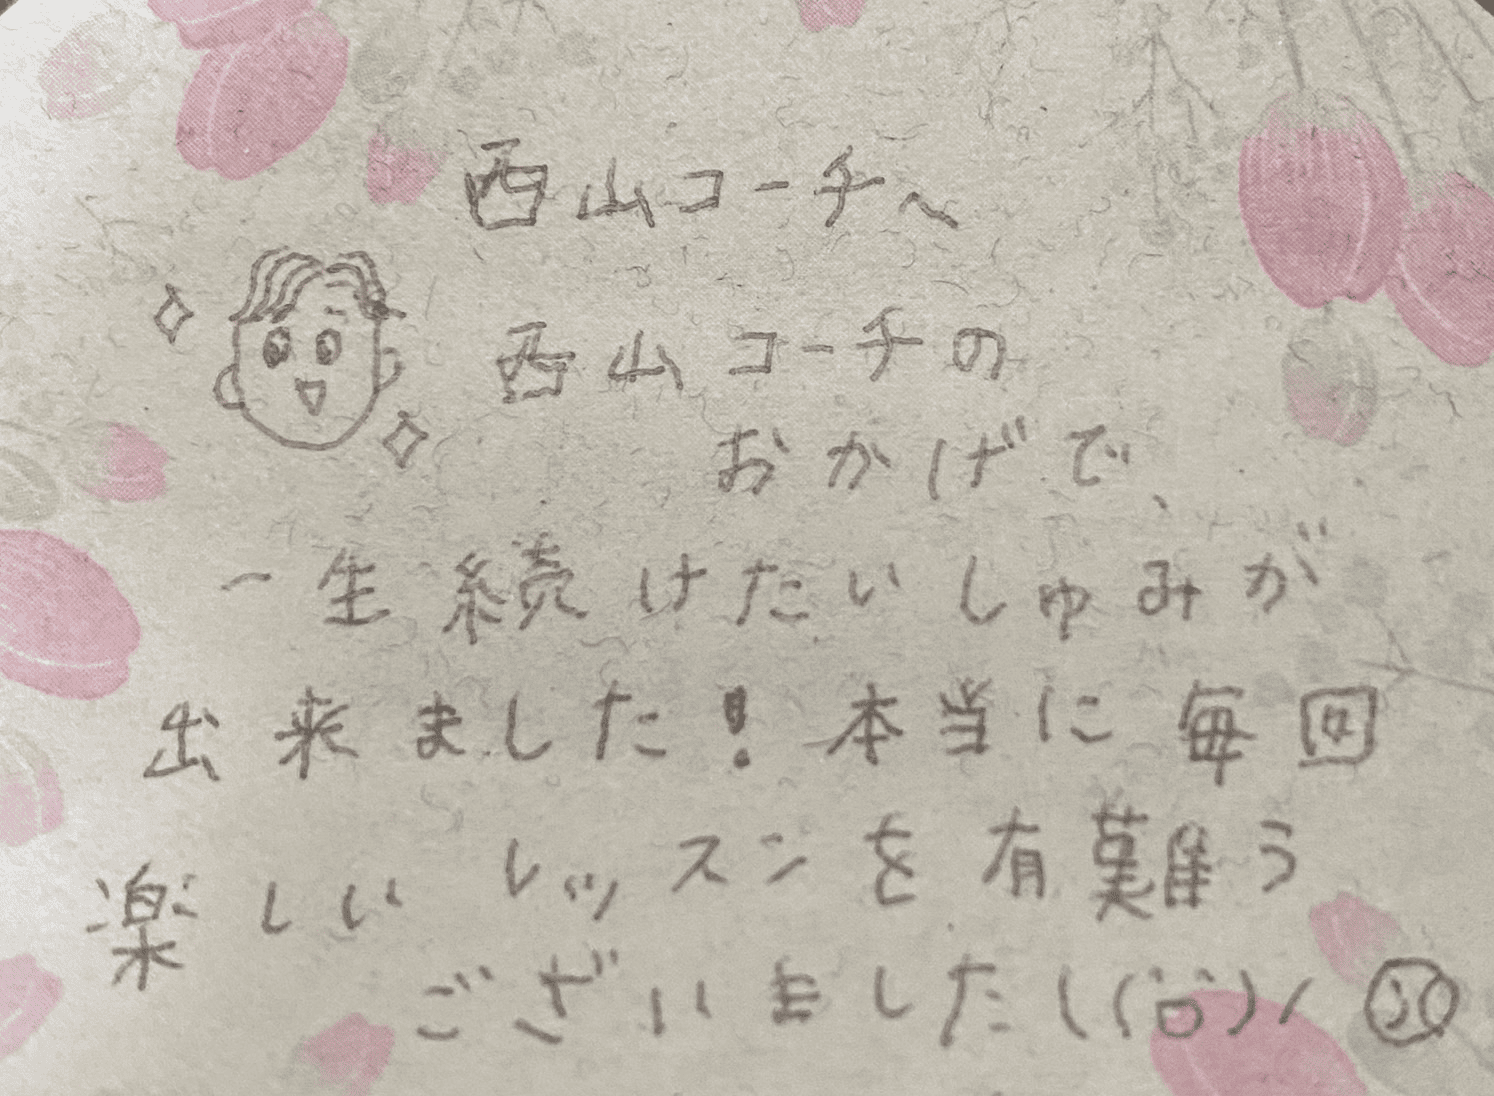 西山コーチへ
西山コーチの
おかげで、
一生続けたいしゅみが
出来ました！本当に毎回
楽しいレッスンを有難う
ございました\(¨o¨)/